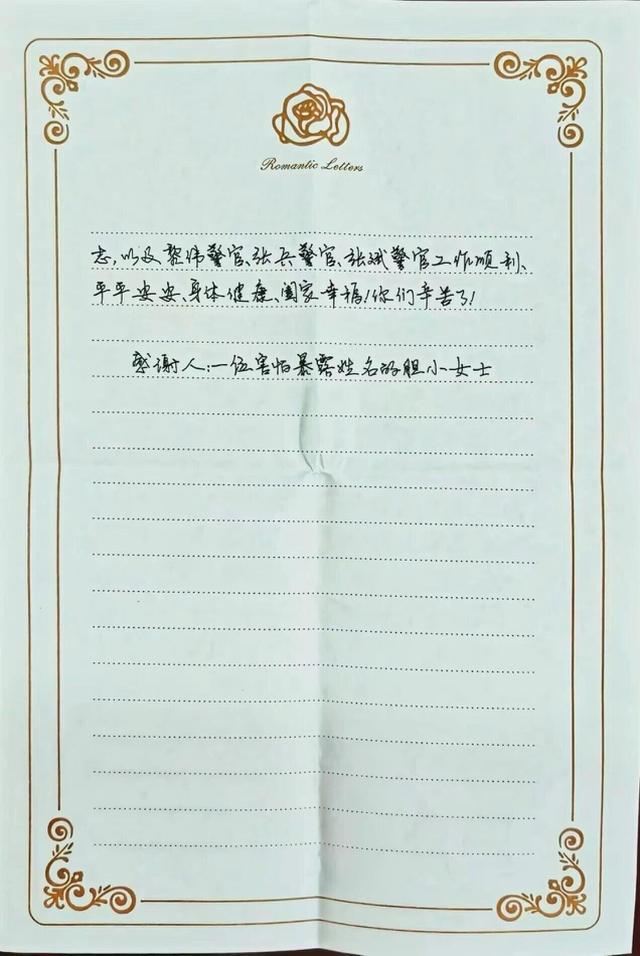 Romantic Letters
志,以及黎伟警官、张兵警官、张斌警官工作顺利、
平平安安、身体健康、阖家幸福!你们辛苦了!
感谢人:一位害怕暴露姓名的胆小女士